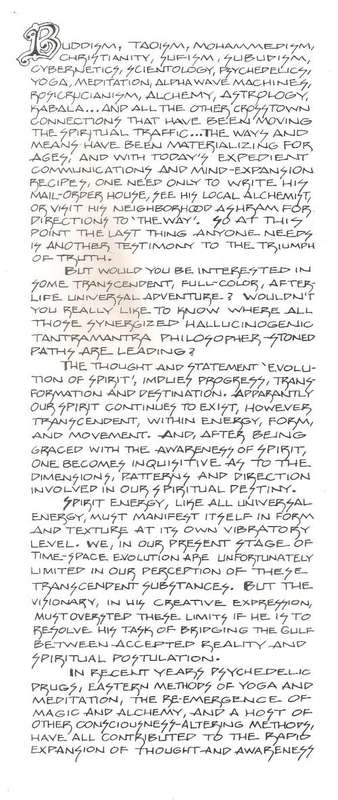 BUDDISM, TAOISM, MOHAMMEDISM,
CHRISTIANITY, SUFISM, SUBUDISM,
CYBERNETICS, SCIENTOLOGY, PSYCHEDELICS,
YOGA, MEDITATION, ALPHA WAVE MACHINES,
ROSICRUCIANISM, ALCHEMY, ASTROLOGY,
KABALA...AND ALL THE OTHER CROSSTOWN
CONNECTIONS THAT HAVE BEEN MOVING
THE SPIRITUAL TRAFFIC...THE WAYS AND
MEANS HAVE BEEN MATERIALIZING FOR
AGES, AND WITH TODAY'S EXPEDIENT
COMMUNICATIONS AND MIND-EXPANSION
RECIPES, ONE NEED ONLY TO WRITE HIS
MAIL-ORDER HOUSE, SEE HIS LOCAL ALCHEMIST,
OR VISIT HIS NEIGHBORHOOD ASHRAM FOR
DIRECTIONS TO 'THE WAY'. SO AT THIS
POINT THE LAST THING ANYONE NEEDS
IS ANOTHER TESTIMONY TO THE TRIUMPH
OF TRUTH.
BUT WOULD YOU BE INTERESTED IN
SOME TRANSCENDENT, FULL-COLOR, AFTER-
LIFE UNIVERSAL ADVENTURE? WOULDN'T
YOU REALLY LIKE TO KNOW WHERE ALL
THOSE SYNERGIZED HALLUCINOGENIC
TANTRAMANTRA PHILOSOPHER-STONED
PATHS ARE LEADING?
THE THOUGHT AND STATEMENT 'EVOLU-
TION OF SPIRIT', IMPLIES PROGRESS, TRANS-
FORMATION AND DESTINATION. APPARANTLY
OUR SPIRIT CONTINUES TO EXIST, HOWEVER
TRANSCENDENT, WITHIN ENERGY, FORM,
AND MOVEMENT. AND, AFTER BEING
GRACED WITH THE AWARENESS OF SPIRIT,
ONE BECOMES INQUISITIVE AS TO THE
DIMENSIONS, PATTERNS AND DIRECTION
INVOLVED IN OUR SPIRITUAL DESTINY.
SPIRIT ENERGY, LIKE ALL UNIVERSAL
ENERGY, MUST MANIFEST ITSELF IN FORM
AND TEXTURE AT ITS OWN VIBRATORY
LEVEL. WE, IN OUR PRESENT STAGE OF
TIME-SPACE EVOLUTION ARE UNFORTUNATELY
LIMITED IN OUR PERCEPTION OF THESE
TRANSCENDENT SUBSTANCES. BUT THE
VISIONARY, IN HIS CREATIVE EXPRESSION,
MUST OVERSTEP THESE LIMITS IF HE IS TO
RESOLVE HIS TASK OF BRIDGING THE GULF
BETWEEN ACCEPTED REALITY AND
SPIRITUAL POSTULATION.
IN RECENT YEARS PSYCHEDELIC
DRUGS, EASTERN METHODS OF YOGA AND
MEDITATION, THE RE-EMERGENCE OF
MAGIC AND ALCHEMY, AND A HOST OF
OTHER CONSCIOUSNESS-ALTERING METHODS,
HAVE ALL CONTRIBUTED TO THE RAPID
EXPANSION OF THOUGHT AND AWARENESS